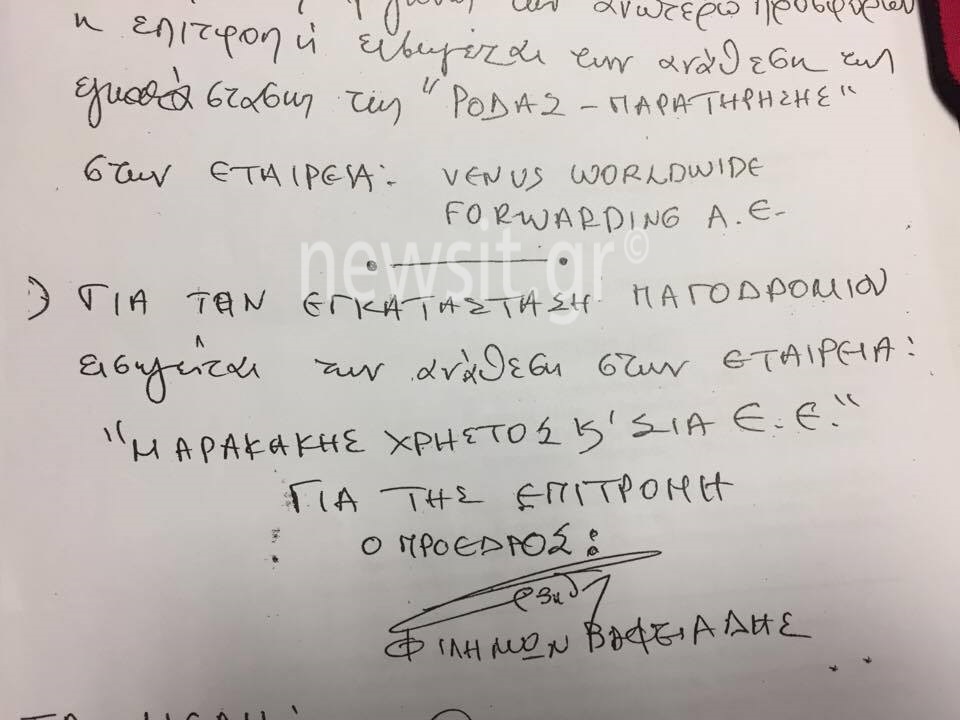 των ανωτέρω προσφορών
η επιτροπή εισηγείται την ανάθεση της
εγκατάστασης της "ΡΟΔΑΣ - ΠΑΡΑΤΗΡΗΣΗΣ"
στην ΕΤΑΙΡΕΙΑ: VENUS WORLDWIDE
FORWARDING A.E.
newsit.gr©
) ΓΙΑ ΤΗΝ ΕΓΚΑΤΑΣΤΑΣΗ ΠΑΓΟΔΡΟΜΙΟΥ
εισηγείται την ανάθεση στην ΕΤΑΙΡΕΙΑ:
"ΜΑΡΑΚΑΚΗΣ ΧΡΗΣΤΟΣ & ΣΙΑ Ε.Ε."
ΓΙΑ ΤΗΣ ΕΠΙΤΡΟΠΗ
Ο ΠΡΟΕΔΡΟΣ:
ΦΙΛΗΜΩΝ ΒΑΦΕΙΑΔΗΣ